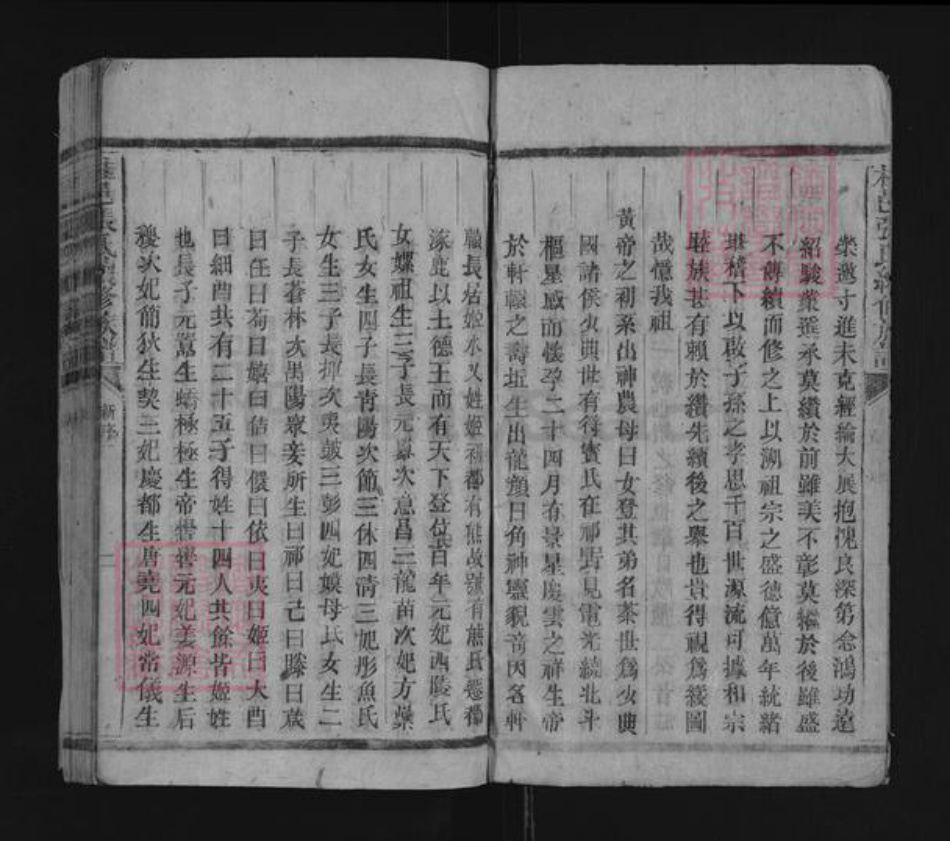 榮邀寸進未克經綸大展抱愧良深第念鴻功遠
紹駿業選承莫纘於前雖美不彰莫繼於後雖盛
不傳續而修之上以溯祖宗之盛德億萬年統緒
堪稽下以啟子孫之孝思千百世源流可據和宗
睦族甚有賴於纘先續後之舉也豈得視為緩圖
哉憶我祖
黃帝之初系出神農母曰女登其弟名荼世為少典
國諸侯少典世有符寶氏在祁野見電光繞北斗
樞星感而懷孕二十四月有景星慶雲之祥生帝
於軒轅之壽坵生出龍顏日角神靈貌奇因名軒
轅長居姬水又姓姬初都有熊故號有熊氏遷都
涿鹿以土德王而有天下登位百年元妃西陵氏
女嫘祖生三子長元囂次意昌三龍苗次妃方纍
氏女生四子長青陽次節三休四清三妃彤魚氏
女生三子長揮次夷鼓三彭四妃嫫母氏女生二
子長蒼林次禺陽眾妾所生曰祁曰己曰滕曰葴
曰任曰荀曰嬉曰佶曰儇曰依曰夷曰姬曰大酉
曰細酉共有二十五子得姓十四人共餘皆姬姓
也長子元囂生蟜極極生帝嚳嚳元妃姜源生后
稷次妃簡狄生契三妃慶都生唐堯四妃常儀生